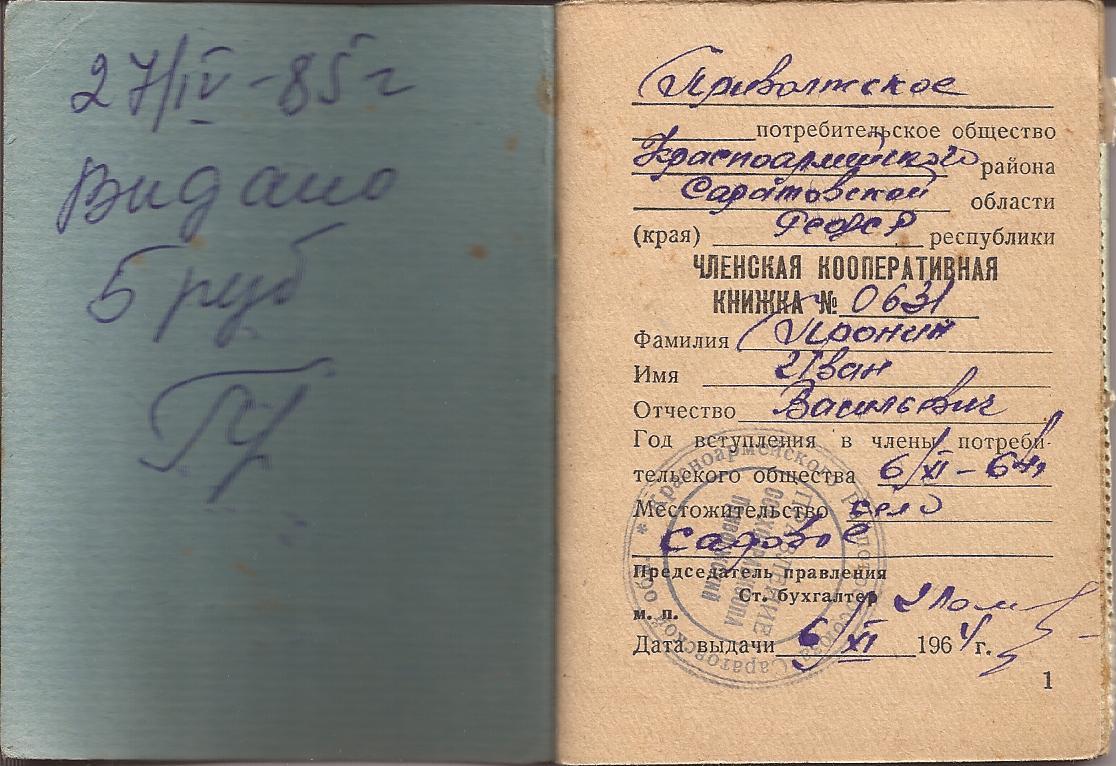 27/IV-85г
Видано
5 руб
Приволжское
потребительское общество
Красноармейского района
Саратовской области
(край) РСФСР республики
ЧЛЕНСКАЯ КООПЕРАТИВНАЯ
КНИЖКА № 0631
Фамилия Пронин
Имя Иван
Отчество Васильевич
Год вступления в члены потреби-
тельского общества 6/XI-64г
Местожительство село
Садовое
Председатель правления
Ст. бухгалтер
м. п.
Дата выдачи 6 XI 1964 г.
1
* Красноармейского райпотребсоюза Саратовской обл.
ПРАВЛЕНИЕ